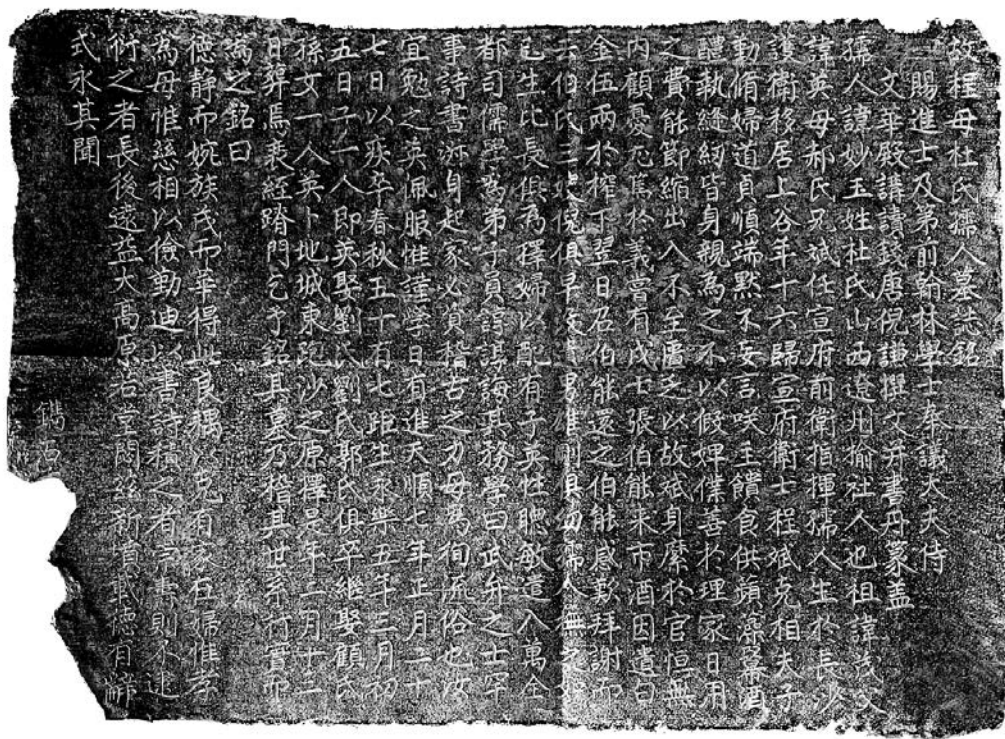 故程母杜氏孺人墓誌銘
賜進士及第前翰林學士奉議大夫侍
文華殿講讀錢唐倪謙撰文并書丹篆蓋
孺人諱妙玉姓杜氏山西遼州榆社人也祖諱茂父
諱英母郝氏兄斌任宣府前衛指揮孺人生於長沙
護衛移居上谷年十六歸宣府衛士程斌克相夫子
勤脩婦道貞順端默不妄言咲主饋食供蘋藻冪酒
醴執縫紉皆身親為之不以假婢僕善於理家日用
之費能節縮出入不至匱乏以故斌身縻於官恒無
內顧憂尤篤於義嘗有戍士張伯能来市酒因遺白
金伍兩於榨下翌日召伯能還之伯能感歎拜謝而
去伯氏三 俱早 男 俱幼孺人無
己生比長俱為擇婦以配有子英性聰敏遣入萬全
都司儒學為弟子員諄諄誨其務學曰武弁之士罕
事詩書汝身起家必資稽古之力毋為徇流俗也汝
宜勉之英佩服惟謹學日有進天順七年正月二十
七日以疾卒春秋五十有七距生永樂五年三月初
五日子一人即英娶劉氏劉氏郭氏俱卒繼娶顧氏
孫女一人英卜地城東跑沙之原擇是年二月十二
日葬焉衰絰踏門乞予銘其墓乃稽其世系行實而
為之銘曰
德靜而婉族氏而華得此良耦克有家在婦惟孝
為母惟慈相以儉勤迪以書詩積之者 壽則不
衍之者長後遠益大高原若堂閟茲新 載德有辭
式永其聞
鐫石